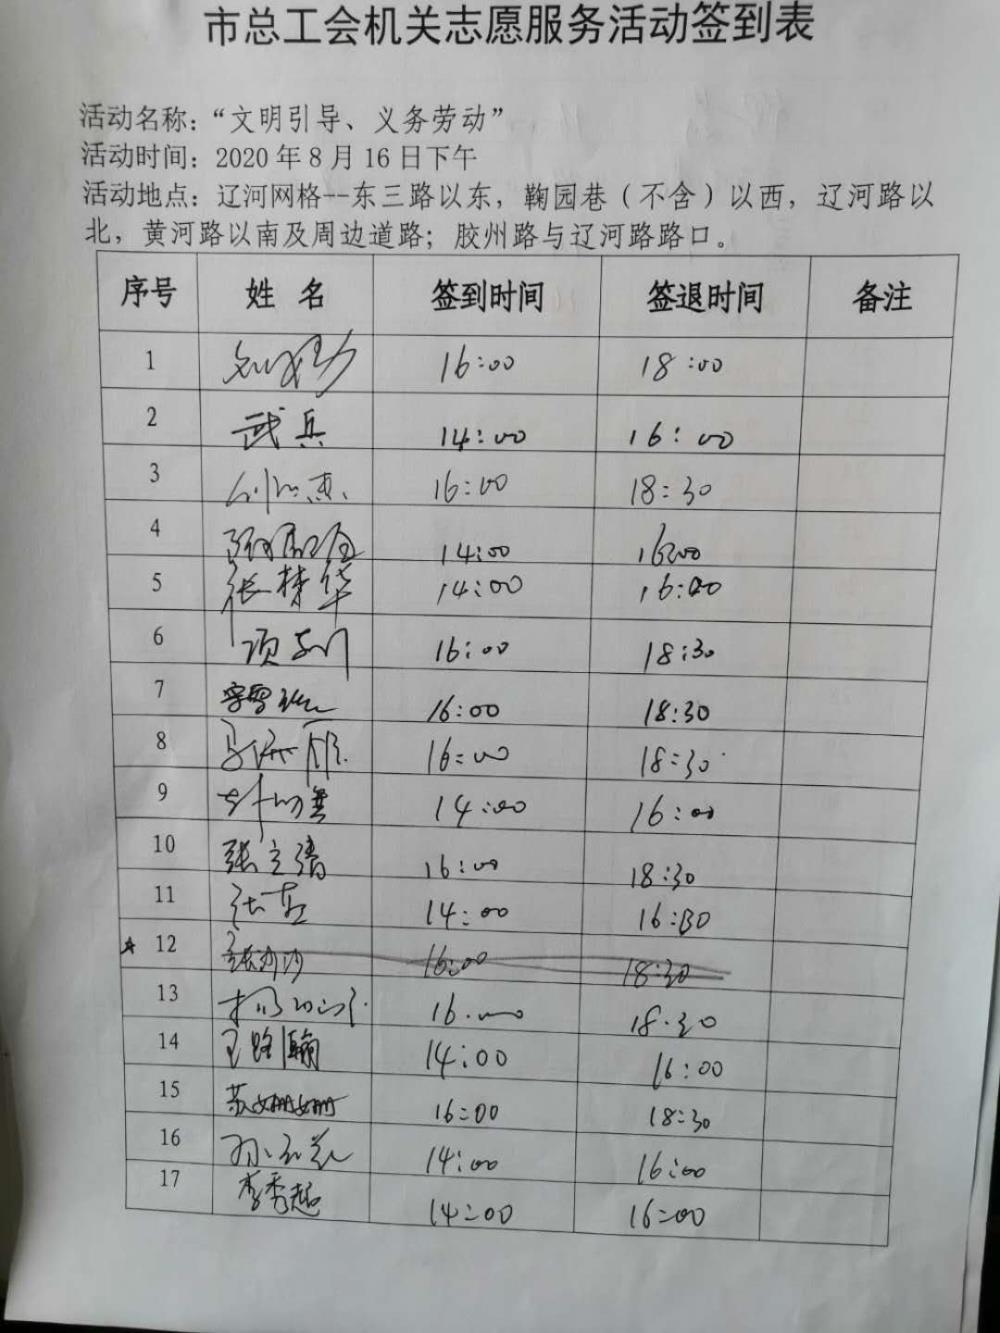 市总工会机关志愿服务活动签到表
活动名称：“文明引导、义务劳动”
活动时间：2020年8月16日下午
活动地点：辽河网格--东三路以东，鞠园巷（不含）以西，辽河路以
北，黄河路以南及周边道路；胶州路与辽河路路口。
序号 姓 名 签到时间 签退时间 备注
1 16:00 18:00
2 武兵 14:00 16:00
3 16:00 18:30
4 14:00 16:00
5 张梅华 14:00 16:00
6 16:00 18:30
7 16:00 18:30
8 16:00 18:30
9 14:00 16:00
10 张立清 16:00 18:30
11 张 14:00 16:30
12 16:00 18:30
13 16:00 18:30
14 王路瀚 14:00 16:00
15 苏姗姗 16:00 18:30
16 孙 14:00 16:00
17 李秀超 14:00 16:00